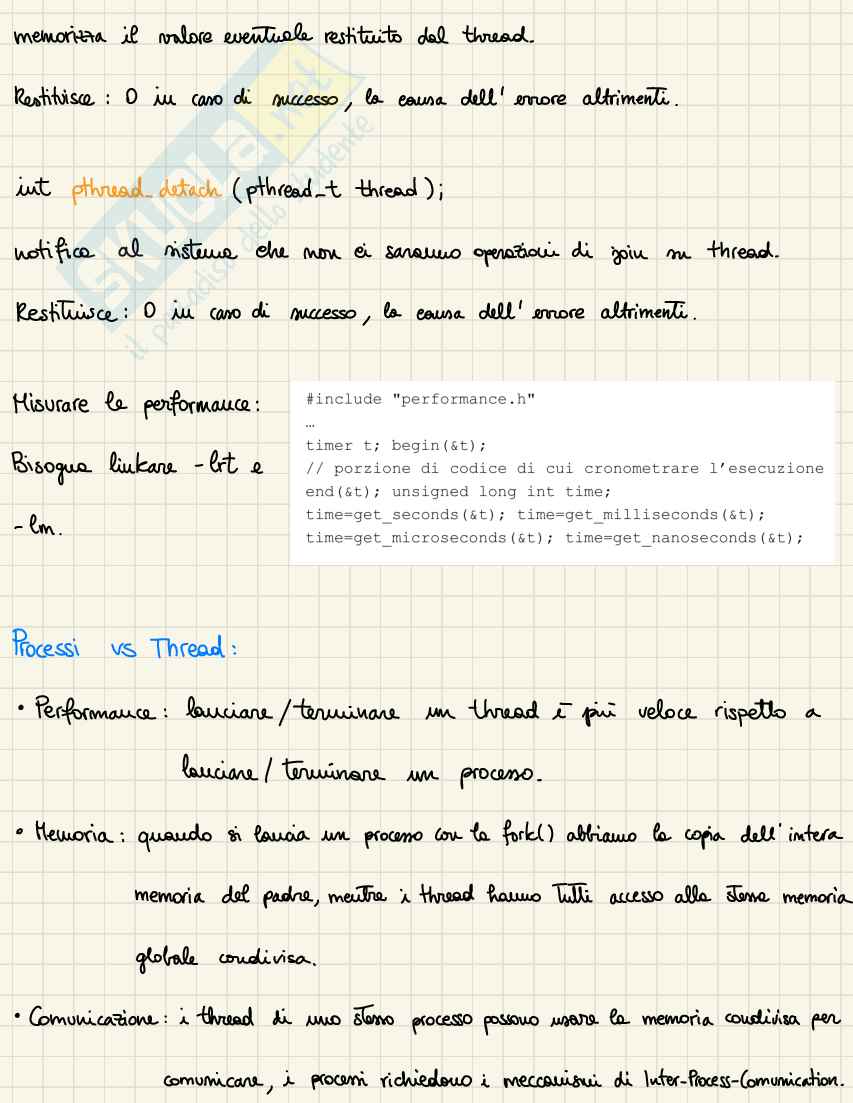 memorizza il valore eventuale restituito dal thread.
Restituisce : 0 in caso di successo, la causa dell' errore altrimenti.
SKUOLA.net
il paradiso dello studente
int pthread_detach (pthread_t thread);
notifica al sistema che non ci saranno operazioni di join su thread.
Restituisce : 0 in caso di successo, la causa dell' errore altrimenti.
Misurare le performance :
Bisogna linkare -lrt e
-lm.
#include "performance.h"
…
timer t; begin(&t);
// porzione di codice di cui cronometrare l’esecuzione
end(&t); unsigned long int time;
time=get_seconds(&t); time=get_milliseconds(&t);
time=get_microseconds(&t); time=get_nanoseconds(&t);
Processi vs Thread :
• Performance : lanciare/terminare un thread è più veloce rispetto a
lanciare/terminare un processo.
• Memoria : quando si lancia un processo con la fork() abbiamo la copia dell'intera
memoria del padre, mentre i thread hanno tutti accesso alla stessa memoria
globale condivisa.
• Comunicazione : i thread di uno stesso processo possono usare la memoria condivisa per
comunicare, i processi richiedono i meccanismi di Inter-Process-Comunication.